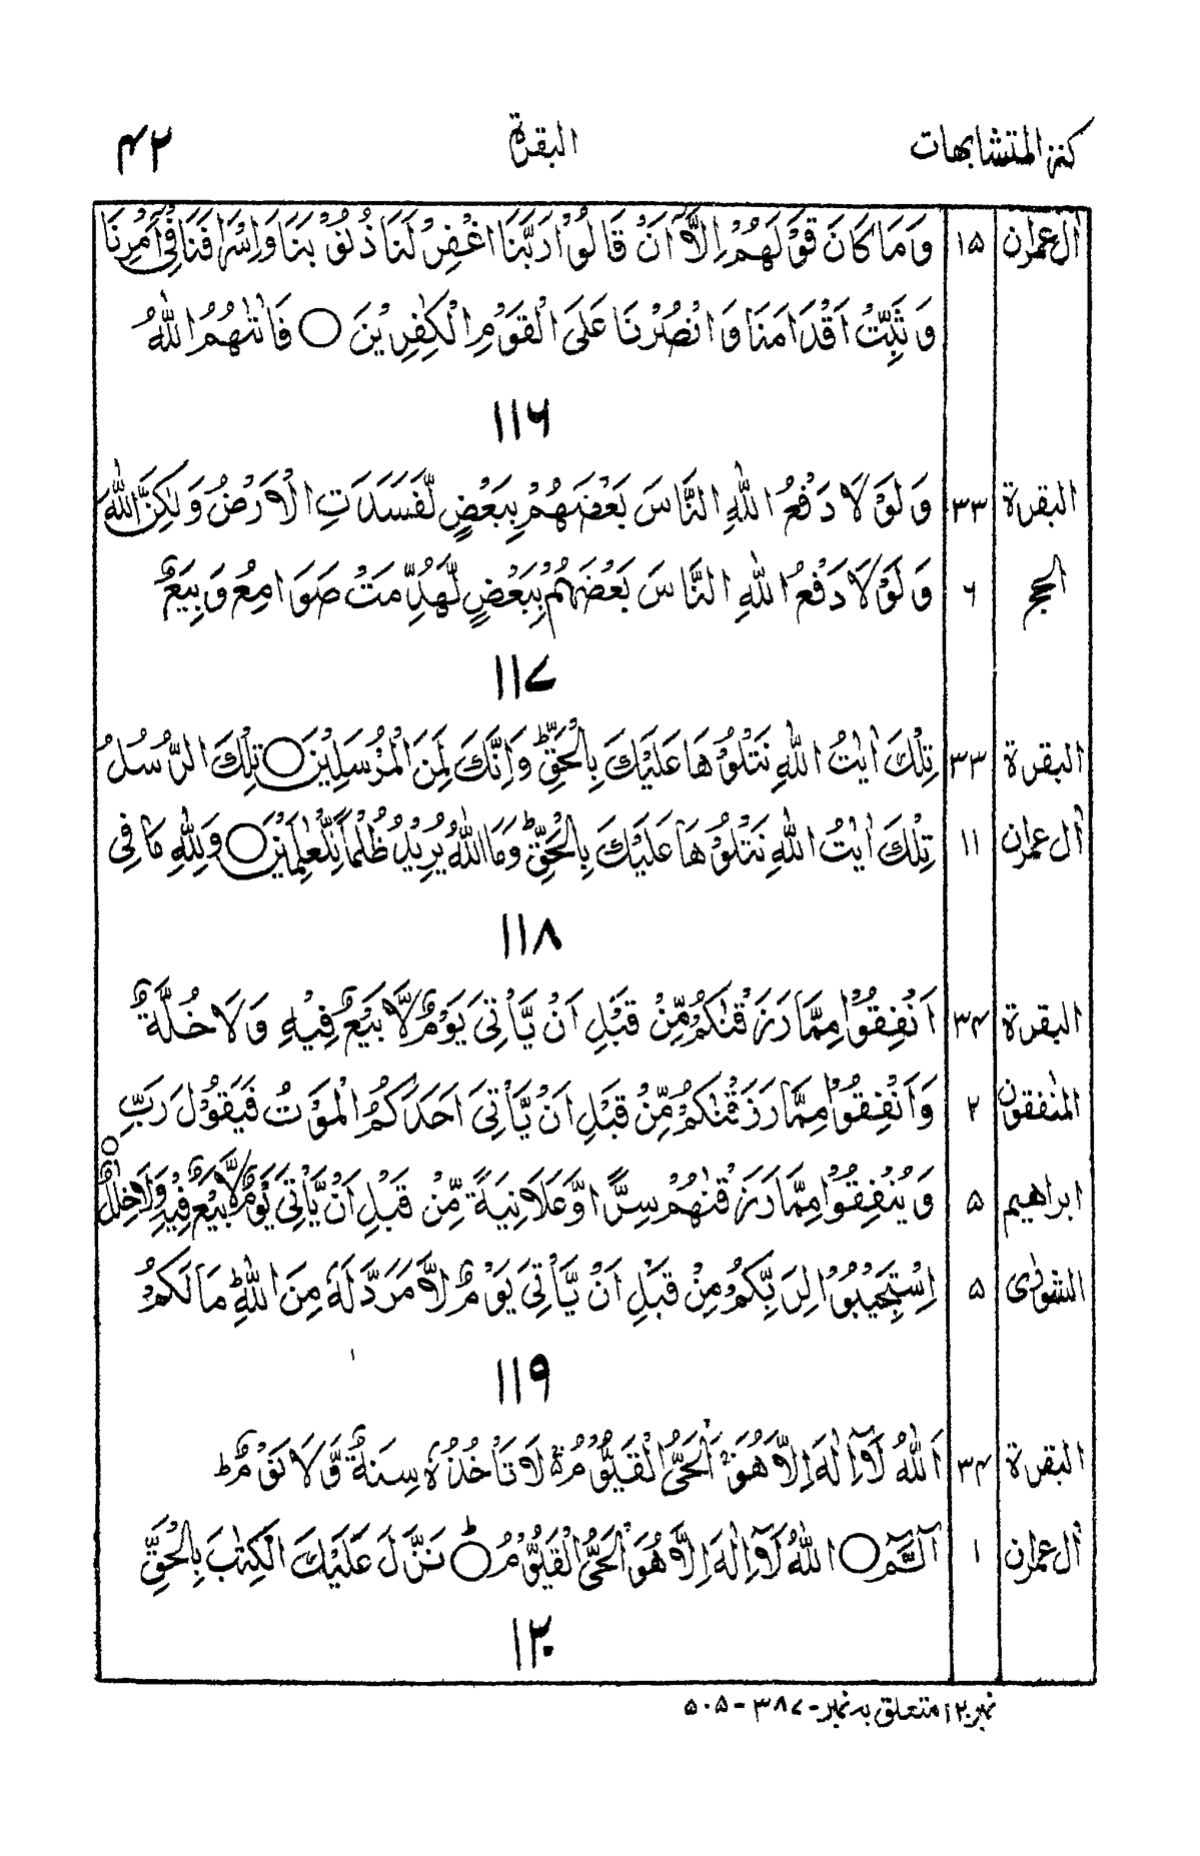 کنز المتشابهات البقرة ۴۲
اٰل عمرٰن ۱۵ وَمَا كَانَ قَوْلَهُمْ اِلَّآ اَنْ قَالُوْا رَبَّنَا اغْفِرْ لَنَا ذُنُوْبَنَا وَاِسْرَافَنَا فِيْٓ اَمْرِنَا
وَثَبِّتْ اَقْدَامَنَا وَانْصُرْنَا عَلَى الْقَوْمِ الْكٰفِرِيْنَ ○ فَاٰتٰهُمُ اللّٰهُ
۱۱۶
البقرة ۳۳ وَلَوْلَا دَفْعُ اللّٰهِ النَّاسَ بَعْضَهُمْ بِبَعْضٍ لَّفَسَدَتِ الْاَرْضُ وَلٰكِنَّ اللّٰهَ
الحج ۶ وَلَوْلَا دَفْعُ اللّٰهِ النَّاسَ بَعْضَهُمْ بِبَعْضٍ لَّهُدِّمَتْ صَوَامِعُ وَبِيَعٌ
۱۱۷
البقرة ۳۳ تِلْكَ اٰيٰتُ اللّٰهِ نَتْلُوْهَا عَلَيْكَ بِالْحَقِّ ؕ وَاِنَّكَ لَمِنَ الْمُرْسَلِيْنَ ○ تِلْكَ الرُّسُلُ
اٰل عمران ۱۱ تِلْكَ اٰيٰتُ اللّٰهِ نَتْلُوْهَا عَلَيْكَ بِالْحَقِّ ؕ وَمَا اللّٰهُ يُرِيْدُ ظُلْمًا لِّلْعٰلَمِيْنَ ○ وَلِلّٰهِ مَا فِى
۱۱۸
البقرة ۳۴ اَنْفِقُوْا مِمَّا رَزَقْنٰكُمْ مِّنْ قَبْلِ اَنْ يَّاْتِىَ يَوْمٌ لَّا بَيْعٌ فِيْهِ وَلَا خُلَّةٌ
المنٰفقون ۲ وَاَنْفِقُوْا مِمَّا رَزَقْنٰكُمْ مِّنْ قَبْلِ اَنْ يَّاْتِىَ اَحَدَكُمُ الْمَوْتُ فَيَقُوْلَ رَبِّ
ابراهيم ۵ وَيُنْفِقُوْا مِمَّا رَزَقْنٰهُمْ سِرًّا وَّعَلَانِيَةً مِّنْ قَبْلِ اَنْ يَّاْتِىَ يَوْمٌ لَّا بَيْعٌ فِيْهِ وَلَا خِلٰلٌ ○
الشورٰى ۵ اِسْتَجِيْبُوْا لِرَبِّكُمْ مِنْ قَبْلِ اَنْ يَّاْتِىَ يَوْمٌ لَّا مَرَدَّ لَهٗ مِنَ اللّٰهِ ؕ مَا لَكُمْ
۱۱۹
البقرة ۳۴ اَللّٰهُ لَآ اِلٰهَ اِلَّا هُوَ ۚ اَلْحَىُّ الْقَيُّوْمُ ۚ لَا تَاْخُذُهٗ سِنَةٌ وَّلَا نَوْمٌ ؕ
اٰل عمرٰن ۱ الٓمّٓ ○ اللّٰهُ لَآ اِلٰهَ اِلَّا هُوَ الْحَىُّ الْقَيُّوْمُ ○ؕ نَزَّلَ عَلَيْكَ الْكِتٰبَ بِالْحَقِّ
۱۲۰
نمبر ۱۲۰ متعلق بہ نمبر - ۳۸۷ - ۵۰۵